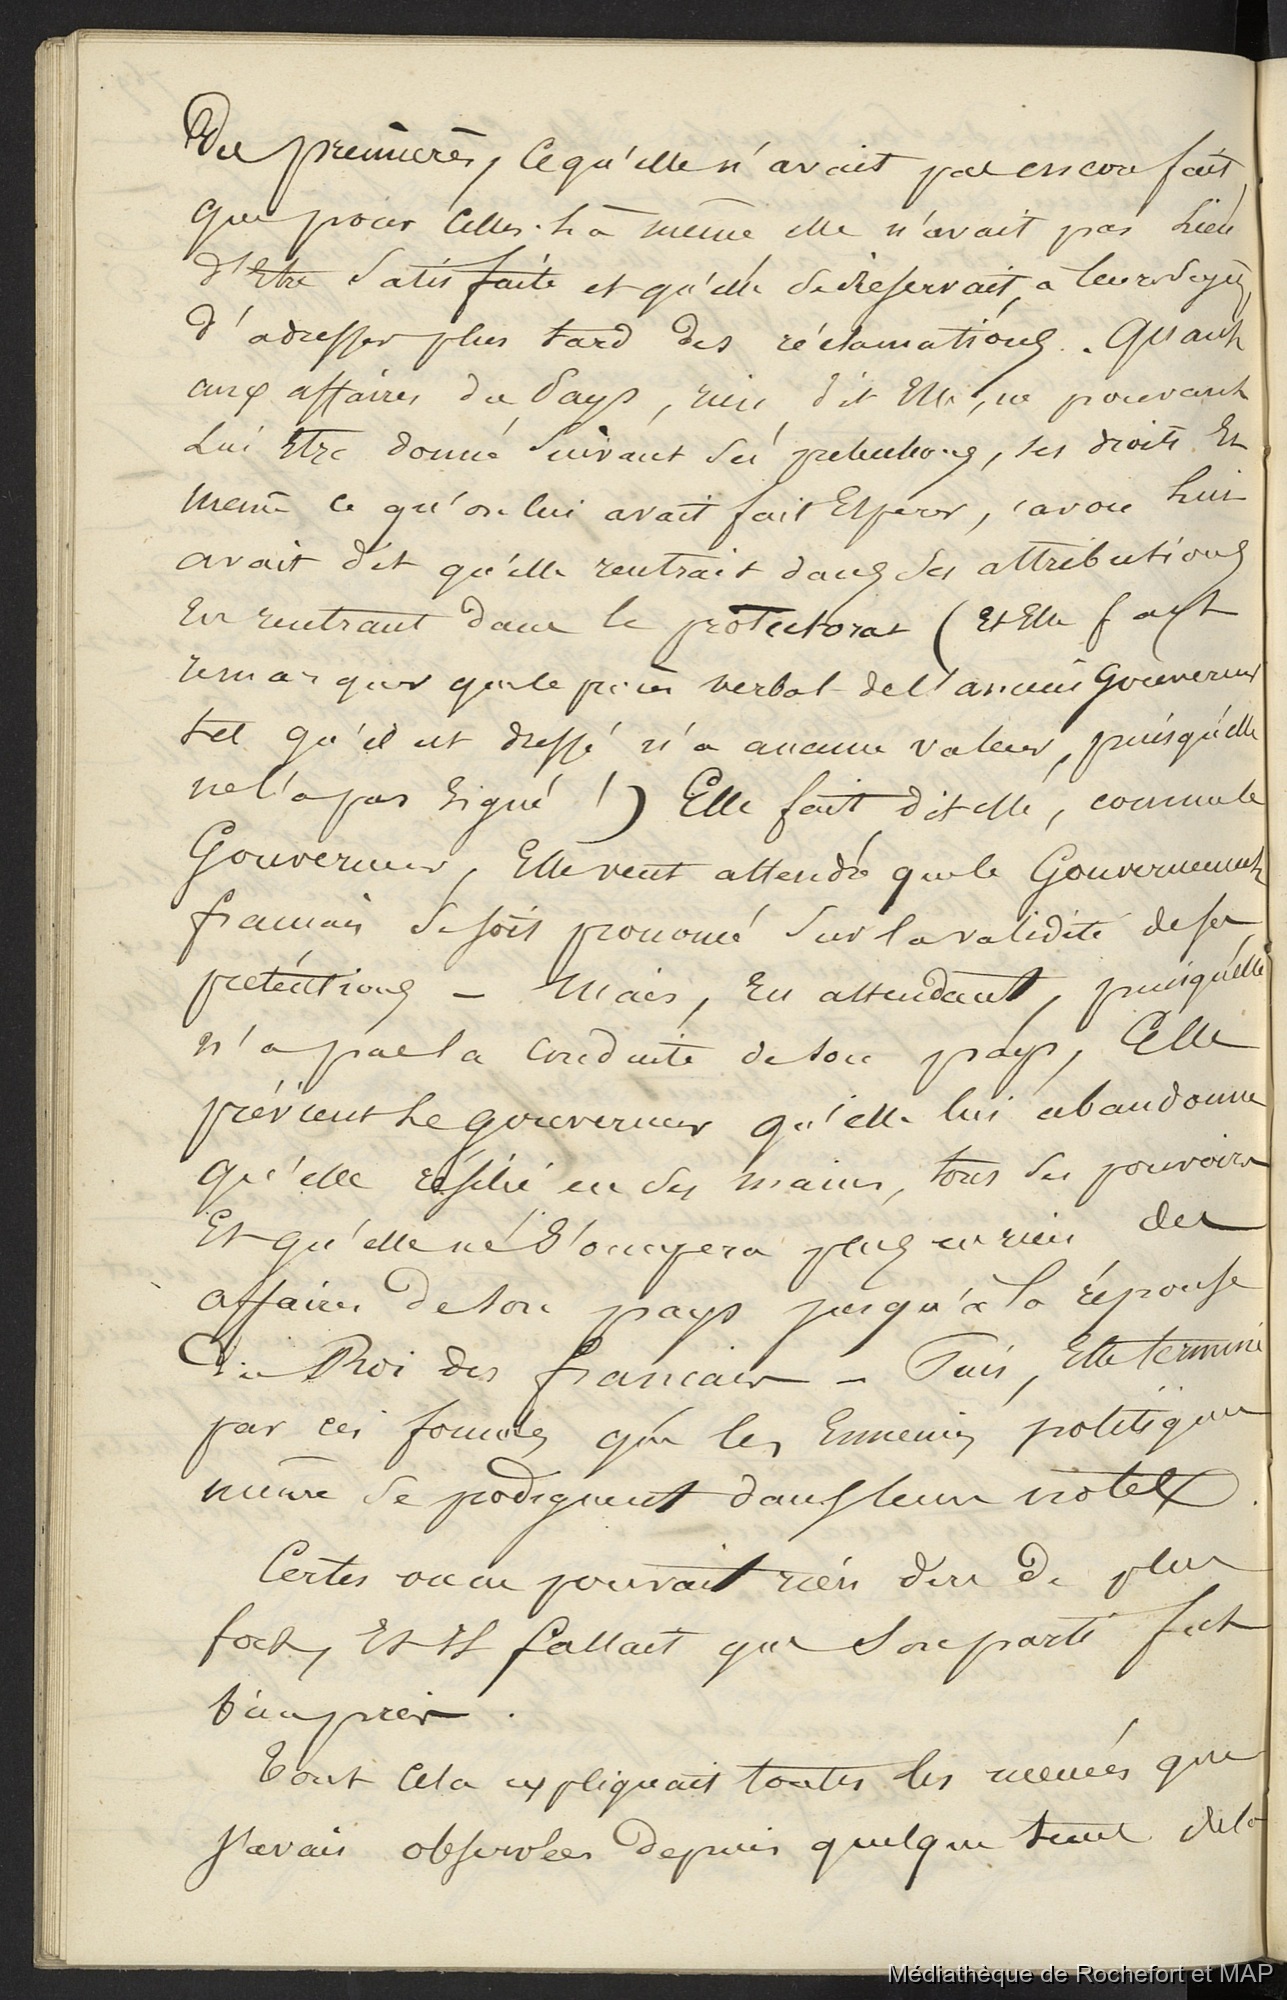 des premières, ce qu'elle n'avait pas encore fait,
que pour celles-là même elle n'avait pas lieu
d'être satisfaite et qu'elle se réservait, à leur sujet,
d'adresser plus tard des réclamations. Quant
aux affaires du Pays, rien dit Elle, ne pouvant
lui Etre donné suivant ses prétentions, ses droits Et
même ce qu'on lui avait fait Espérer,
avait dit qu'elle rentrait dans ses attributions
En rentrant dans le protectorat ( Et Elle fait
remarquer que le procès verbal de l'ancien Gouverneur
tel qu'il est dressé n'a aucune valeur, puisqu'elle
ne l'a pas signé !) Elle fait, dit elle, comme le
Gouverneur, Elle veut attendre que le Gouvernement
français se soit prononcé sur la validité de ses
prétentions – Mais, En attendant, puisqu'elle
n'a pas la conduite de son pays, Elle
prévient le gouverneur qu'elle lui abandonne
qu'elle résilie en ses mains, tous ses pouvoirs
Et qu'elle ne s'occupera plus en rien des
affaires de son pays jusqu'à la réponse
du Roi des français – Puis, Elle termine
par ces formules que les Ennemis politiques
même se prodiguent dans leurs notes.
Certes on ne pouvait rien dire de plus
fort, Et Il fallait que son parti fut
bien pris.
Tout cela expliquait toutes les menées que
j'avais observées depuis quelque tems de la
Médiathèque de Rochefort et MAP